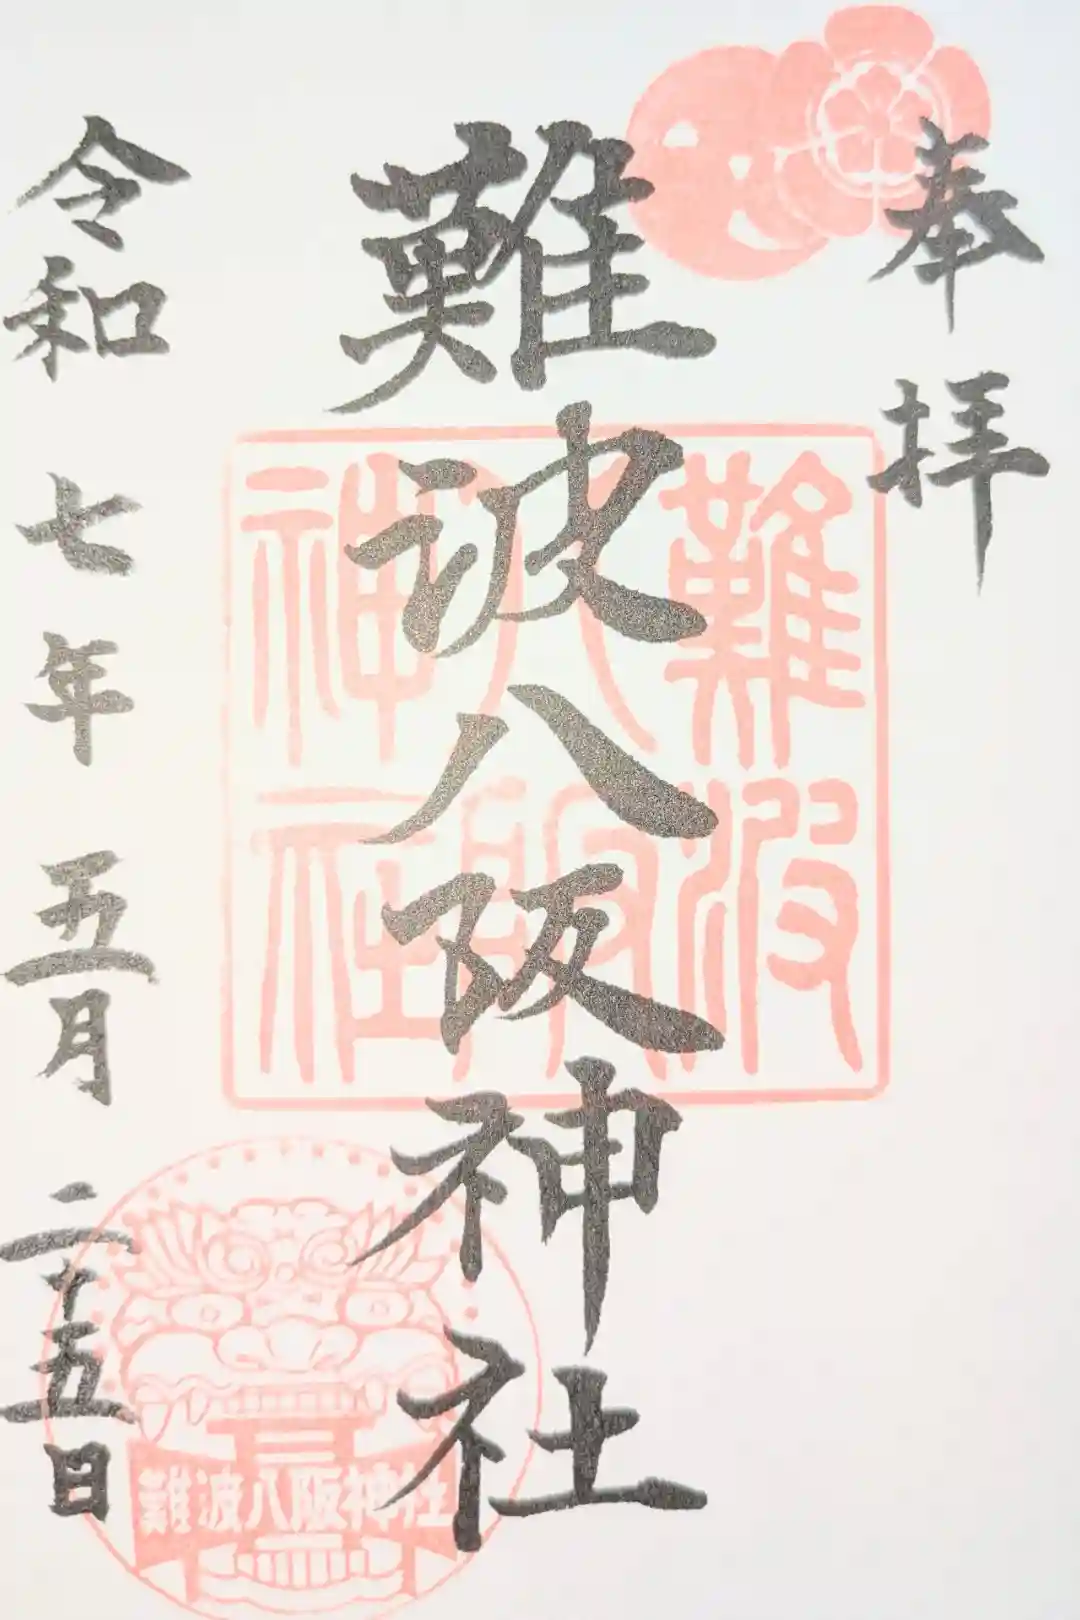 奉拝
難波八阪神社
令和七年五月二十五日
難波
八阪
神社
難波八阪神社